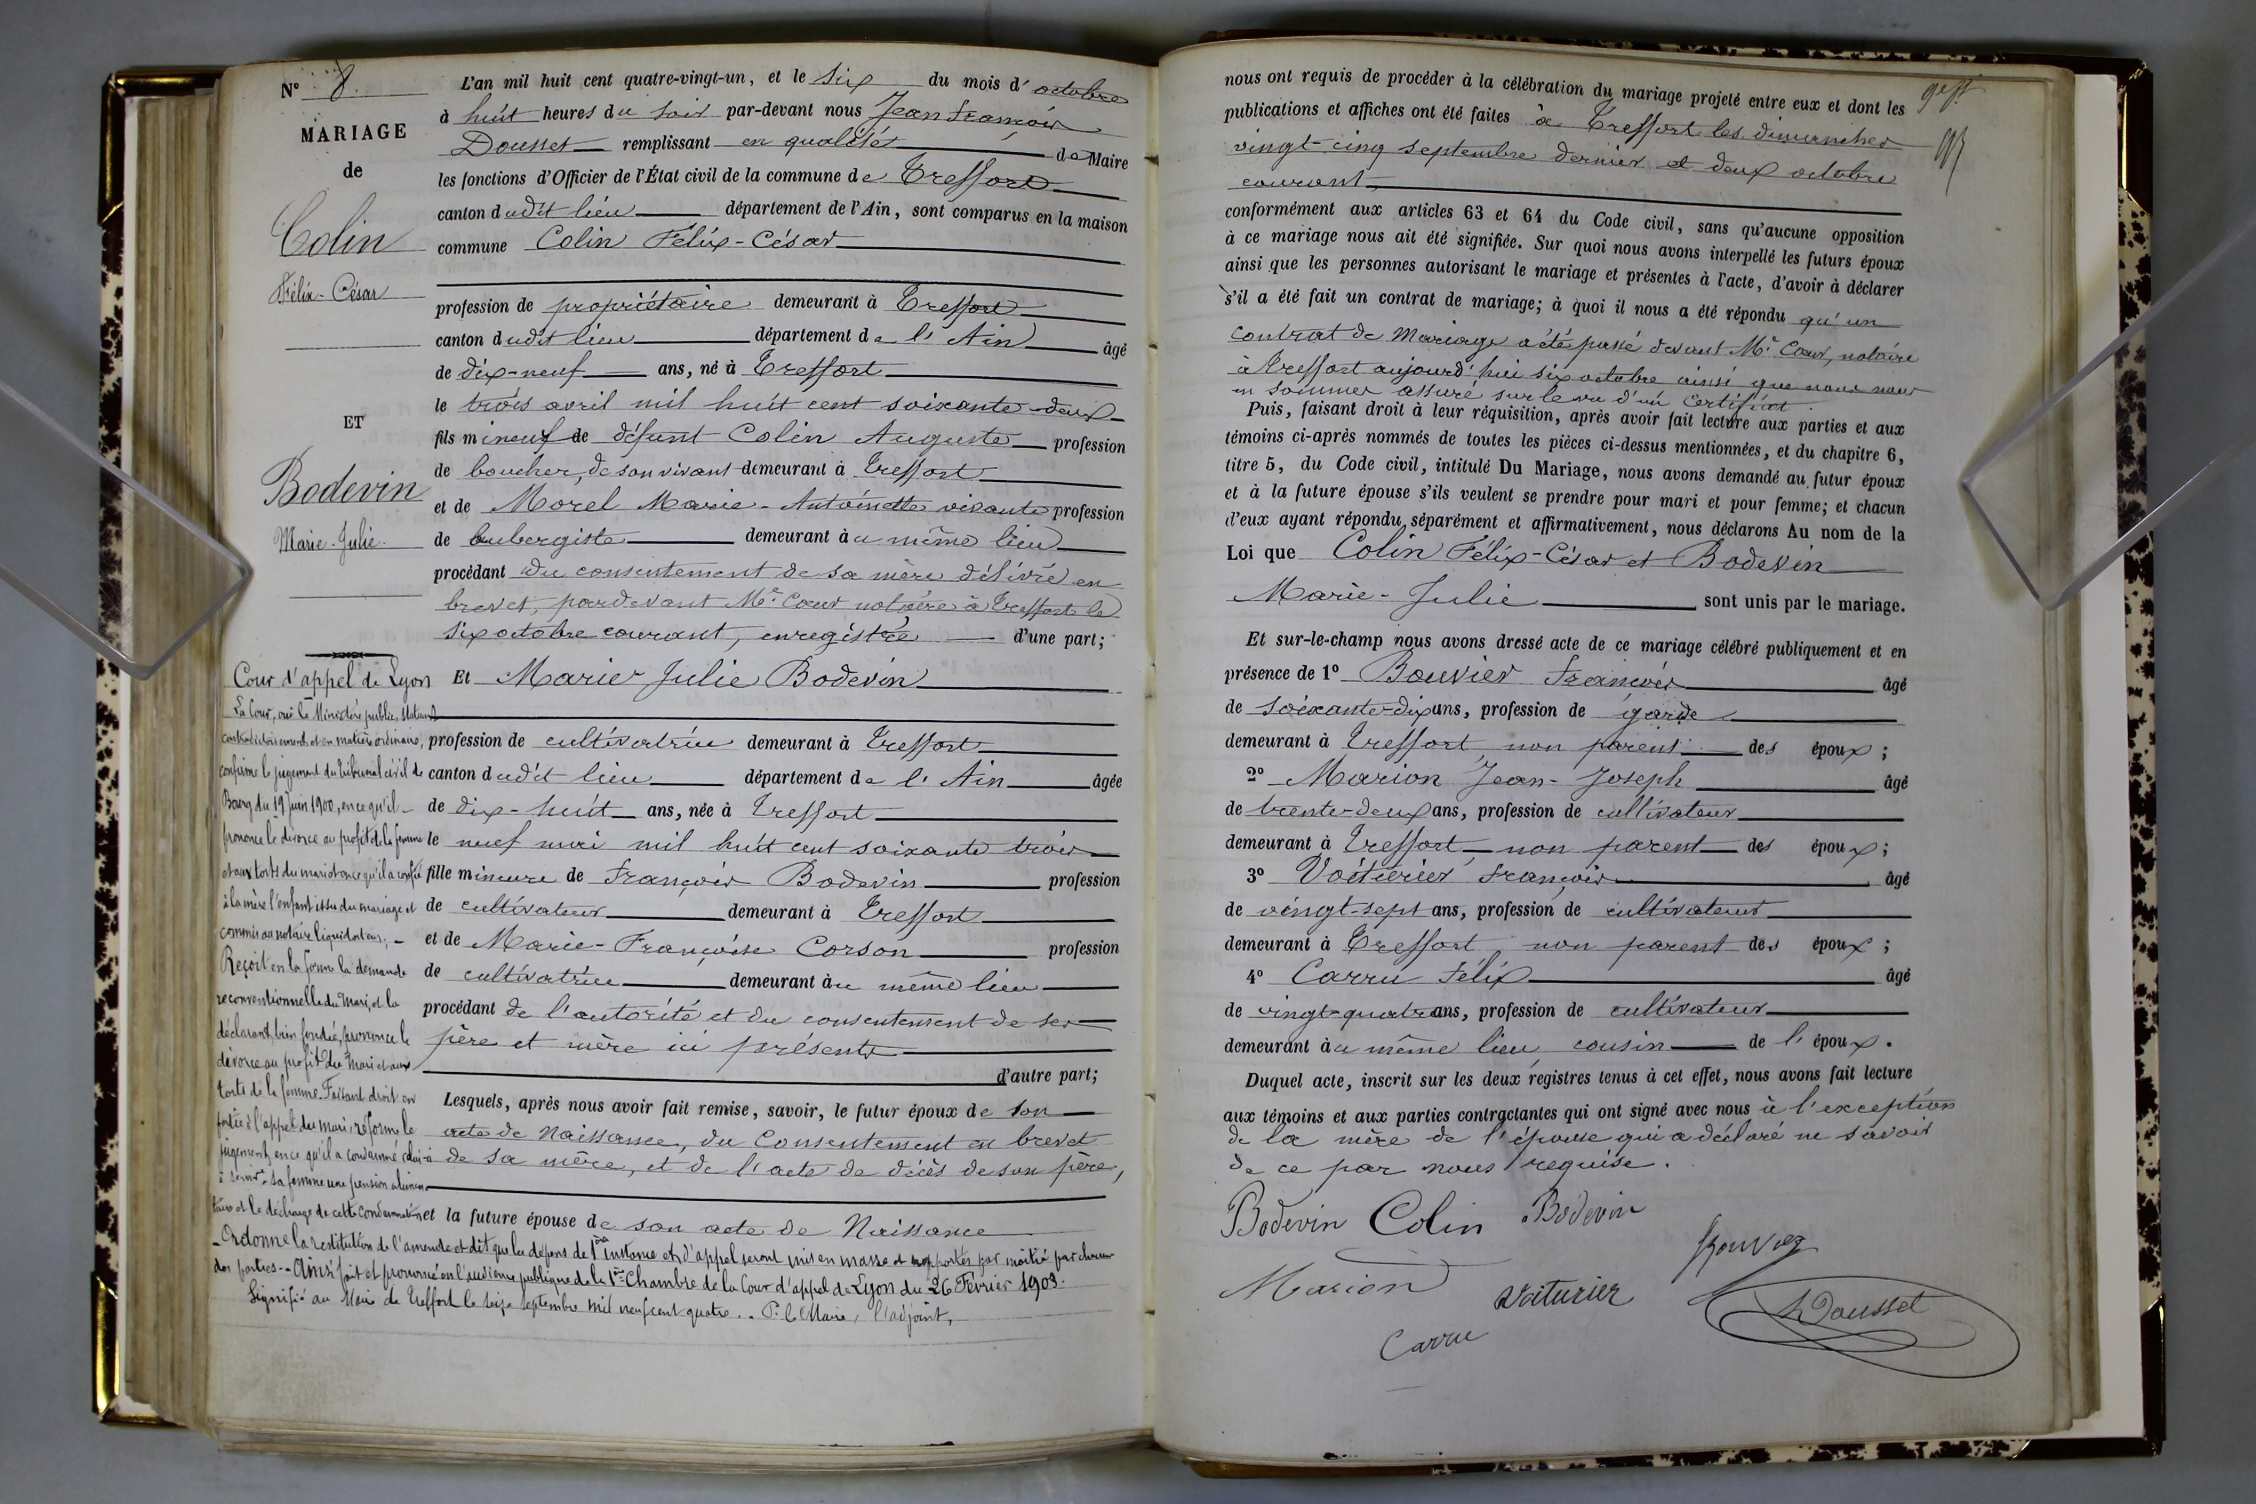 N° 8.
MARIAGE
de
Colin
Félix-César
ET
Bodevin
Marie-Julie
Cour d'appel de Lyon
La Cour, ouï le Ministère public, statuant
contradictoirement et en matière ordinaire,
confirme le jugement du tribunal civil de
Bourg du 19 juin 1900, en ce qu'il
prononce le divorce au profit de la femme
et aux torts du mari et en ce qu'il a confié
à la mère l'enfant issu du mariage et
commis un notaire liquidateur; -
Reçoit en la forme la demande
reconventionnelle du Mari, et la
déclarant bien fondée, prononce le
divorce au profit du Mari et aux
torts de la femme. Faisant droit en
partie à l'appel du mari, réforme le
jugement, en ce qu'il a condamné celui-ci
à servir à sa femme une pension alimen-
taire et le décharge de cette condamnation
- Ordonne la restitution de l'amende et dit que les dépens de 1ère instance et d'appel seront mis en masse et supportés par moitié par chacune
des parties. - Ainsi fait et prononcé en l'audience publique de la 1ère Chambre de la Cour d'appel de Lyon du 26 Février 1903.
Signifié au Maire de Treffort le seize septembre mil neuf cent quatre. . P. le Maire, l'adjoint,
L'an mil huit cent quatre-vingt-un, et le six du mois d'octobre
à huit heures du soir par-devant nous Jean François
Dousset remplissant en qualité de Maire
les fonctions d'Officier de l'État civil de la commune de Treffort
canton dudit lieu département de l'Ain, sont comparus en la maison
commune Colin Félix-César
profession de propriétaire demeurant à Treffort
canton dudit lieu département de l'Ain âgé
de dix-neuf ans, né à Treffort
le trois avril mil huit cent soixante-deux
fils mineur de défunt Colin Auguste profession
de boucher, de son vivant demeurant à Treffort
et de Morel Marie-Antoinette vivante profession
de aubergiste demeurant au même lieu
procédant du consentement de sa mère délivré en
brevet, pardevant Me Cœur notaire à Treffort le
six octobre courant, enregistré d'une part;
Et Marie Julie Bodevin
profession de cultivatrice demeurant à Treffort
canton dudit lieu département de l'Ain âgée
de dix-huit ans, née à Treffort
le neuf mai mil huit cent soixante trois
fille mineure de François Bodevin profession
de cultivateur demeurant à Treffort
et de Marie-Françoise Corson profession
de cultivatrice demeurant au même lieu
procédant de l'autorité et du consentement de ses
père et mère ici présents
d'autre part;
Lesquels, après nous avoir fait remise, savoir, le futur époux de son
acte de Naissance, du Consentement en brevet
de sa mère, et de l'acte de décès de son père,
et la future épouse de son acte de Naissance
nous ont requis de procéder à la célébration du mariage projeté entre eux et dont les
publications et affiches ont été faites à Treffort les dimanches
vingt-cinq septembre dernier et deux octobre
courant,
conformément aux articles 63 et 64 du Code civil, sans qu'aucune opposition
à ce mariage nous ait été signifiée. Sur quoi nous avons interpellé les futurs époux
ainsi que les personnes autorisant le mariage et présentes à l'acte, d'avoir à déclarer
s'il a été fait un contrat de mariage; à quoi il nous a été répondu qu'un
contrat de Mariage a été passé devant Me Cœur, notaire
à Treffort aujourd'hui six octobre ainsi que nous nous
en sommes assuré sur le vu d'un certificat.
Puis, faisant droit à leur réquisition, après avoir fait lecture aux parties et aux
témoins ci-après nommés de toutes les pièces ci-dessus mentionnées, et du chapitre 6,
titre 5, du Code civil, intitulé Du Mariage, nous avons demandé au futur époux
et à la future épouse s'ils veulent se prendre pour mari et pour femme; et chacun
d'eux ayant répondu séparément et affirmativement, nous déclarons Au nom de la
Loi que Colin Félix-César et Bodevin
Marie-Julie sont unis par le mariage.
Et sur-le-champ nous avons dressé acte de ce mariage célébré publiquement et en
présence de 1° Bouvier François âgé
de soixante-dix ans, profession de garde
demeurant à Treffort, non parent des époux;
2° Marion Jean-Joseph âgé
de trente-deux ans, profession de cultivateur
demeurant à Treffort, non parent des époux;
3° Voiturier François âgé
de vingt-sept ans, profession de cultivateur
demeurant à Treffort, non parent des époux;
4° Carru Félix âgé
de vingt-quatre ans, profession de cultivateur
demeurant au même lieu cousin de l'époux.
Duquel acte, inscrit sur les deux registres tenus à cet effet, nous avons fait lecture
aux témoins et aux parties contractantes qui ont signé avec nous à l'exception
de la mère de l'épouse qui a déclaré ne savoir
de ce par nous requise.
Bodevin Colin Bodevin
Bouvier
Marion Voiturier Dousset
Carru